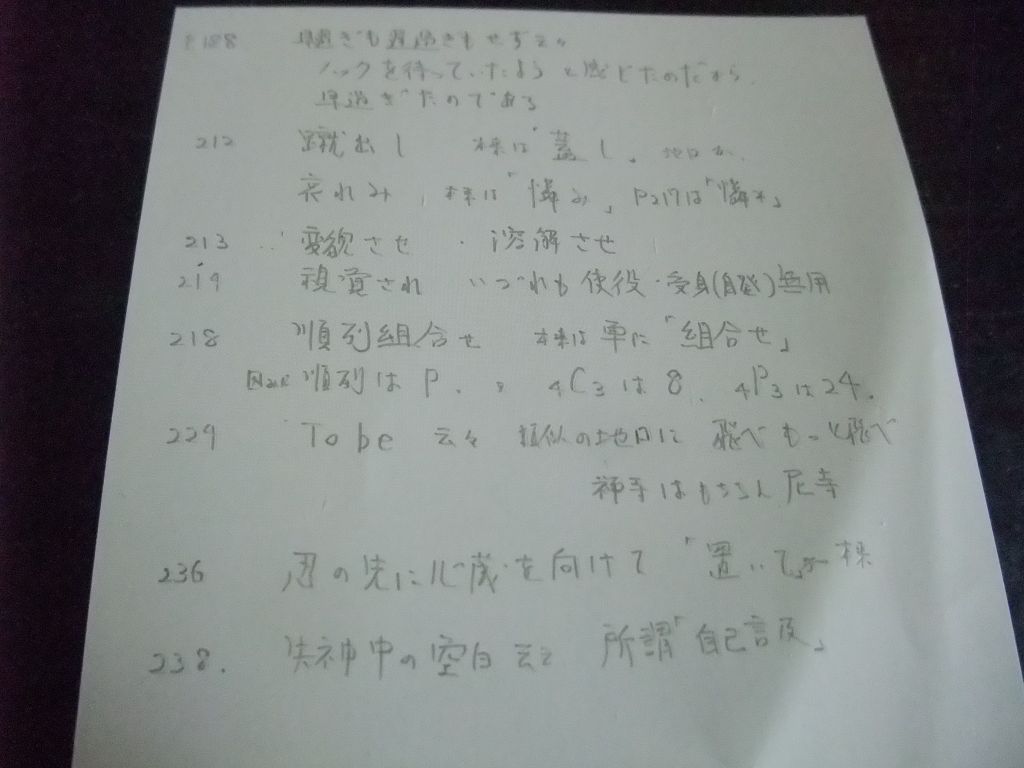 P188 早過ぎも遅過ぎもせず云々
ノックを待っていたようと感じたのだから、
早過ぎたのである
212 蹴出し 本来は「蓋し。地口か、
哀れみ、本来は「憐み」P217は「憐み」
213 変貌させ ・溶解させ
219 視覚され いづれも使役・受身(自発)無用
218 順列組合せ 本来は単に「組合せ」
順列はP、 4C3は8、4P3は24.
229 To be 云々 類似の地口に 飛べもっと飛べ
神手はもちろん尼寺
236 刃の先に心臓を向けて 「置いて」
238. 失神中の空白云々 所謂「自己言及」